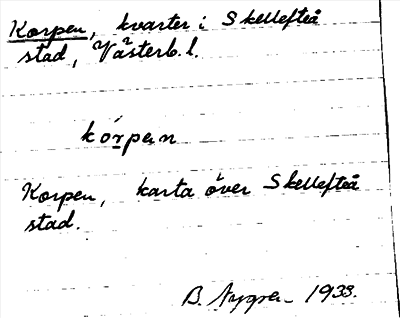 Korpen, kvarter i Skellefteå
stad, Västerb. l.
kórpan
Korpen, karta över Skellefteå
stad.
B. Nygren 1933.